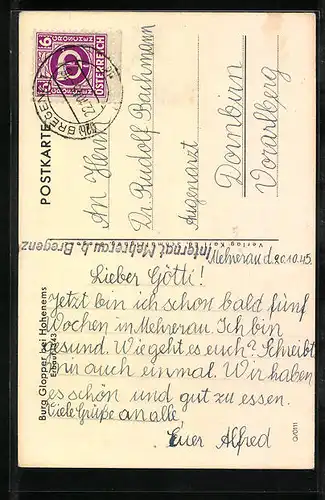 POSTKARTE
6 GROSCHEN
ÖSTERREICH
BREGENZ
An Herrn
Dr. Rudolf Bachmann
Augenarzt
Dornbirn
Vorarlberg
Internat Mehrerau b. Bregenz
Burg Glopper bei Hohenems
Erbaut 1343
Mehrerau d. 20.10.45.
Lieber Götti!
Jetzt bin ich schon bald fünf
Wochen in Mehrerau. Ich bin
gesund. Wie geht es euch? Schreibt
mir auch einmal. Wir haben
es schön und gut zu essen.
Viele Grüße an alle
Euer Alfred